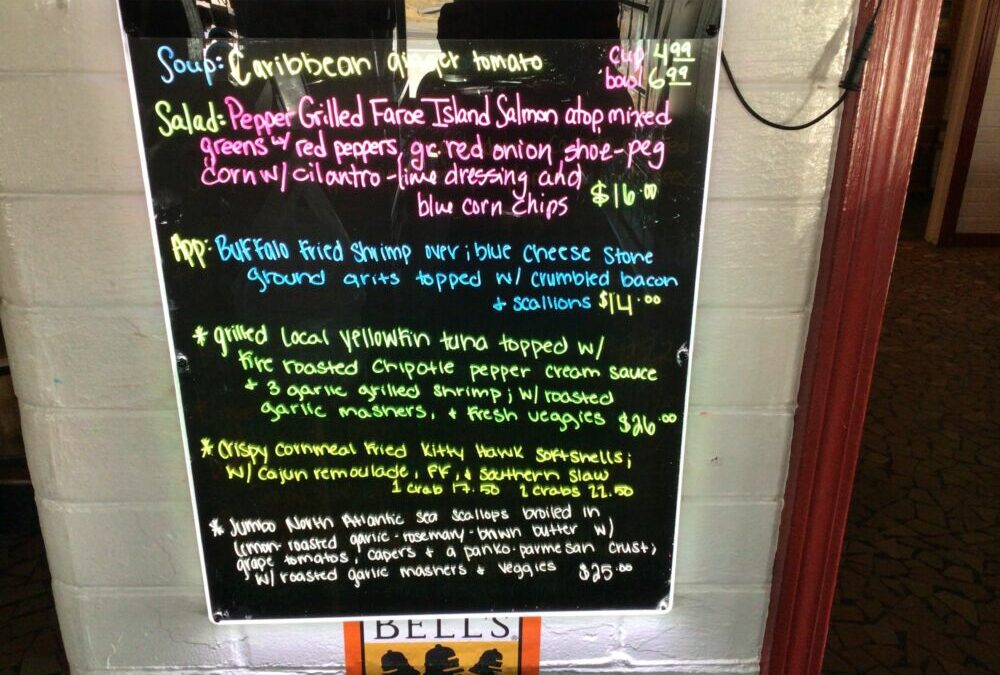 Soup: Caribbean ginger tomato cup 4.99
bowl 6.99
Salad: Pepper Grilled Faroe Island Salmon atop mixed
greens w/ red peppers, gr. red onion, shoe-peg
corn w/ cilantro-lime dressing and
blue corn chips $16.00
App: Buffalo fried shrimp over; blue cheese stone
ground grits topped w/ crumbled bacon
+ scallions $14.00
* grilled local yellowfin tuna topped w/
fire roasted chipotle pepper cream sauce
+ 3 garlic grilled shrimp; w/ roasted
garlic mashers, + fresh veggies $26.00
* Crispy cornmeal fried Kitty Hawk softshells;
w/ cajun remoulade, FF, + southern slaw
1 crab 17.50 2 crabs 22.50
* Jumbo North Atlantic sea scallops broiled in
lemon-roasted garlic-rosemary-brown butter w/
grape tomatoes, capers + a panko-parmesan crust;
w/ roasted garlic mashers + veggies $25.00
BELL'S